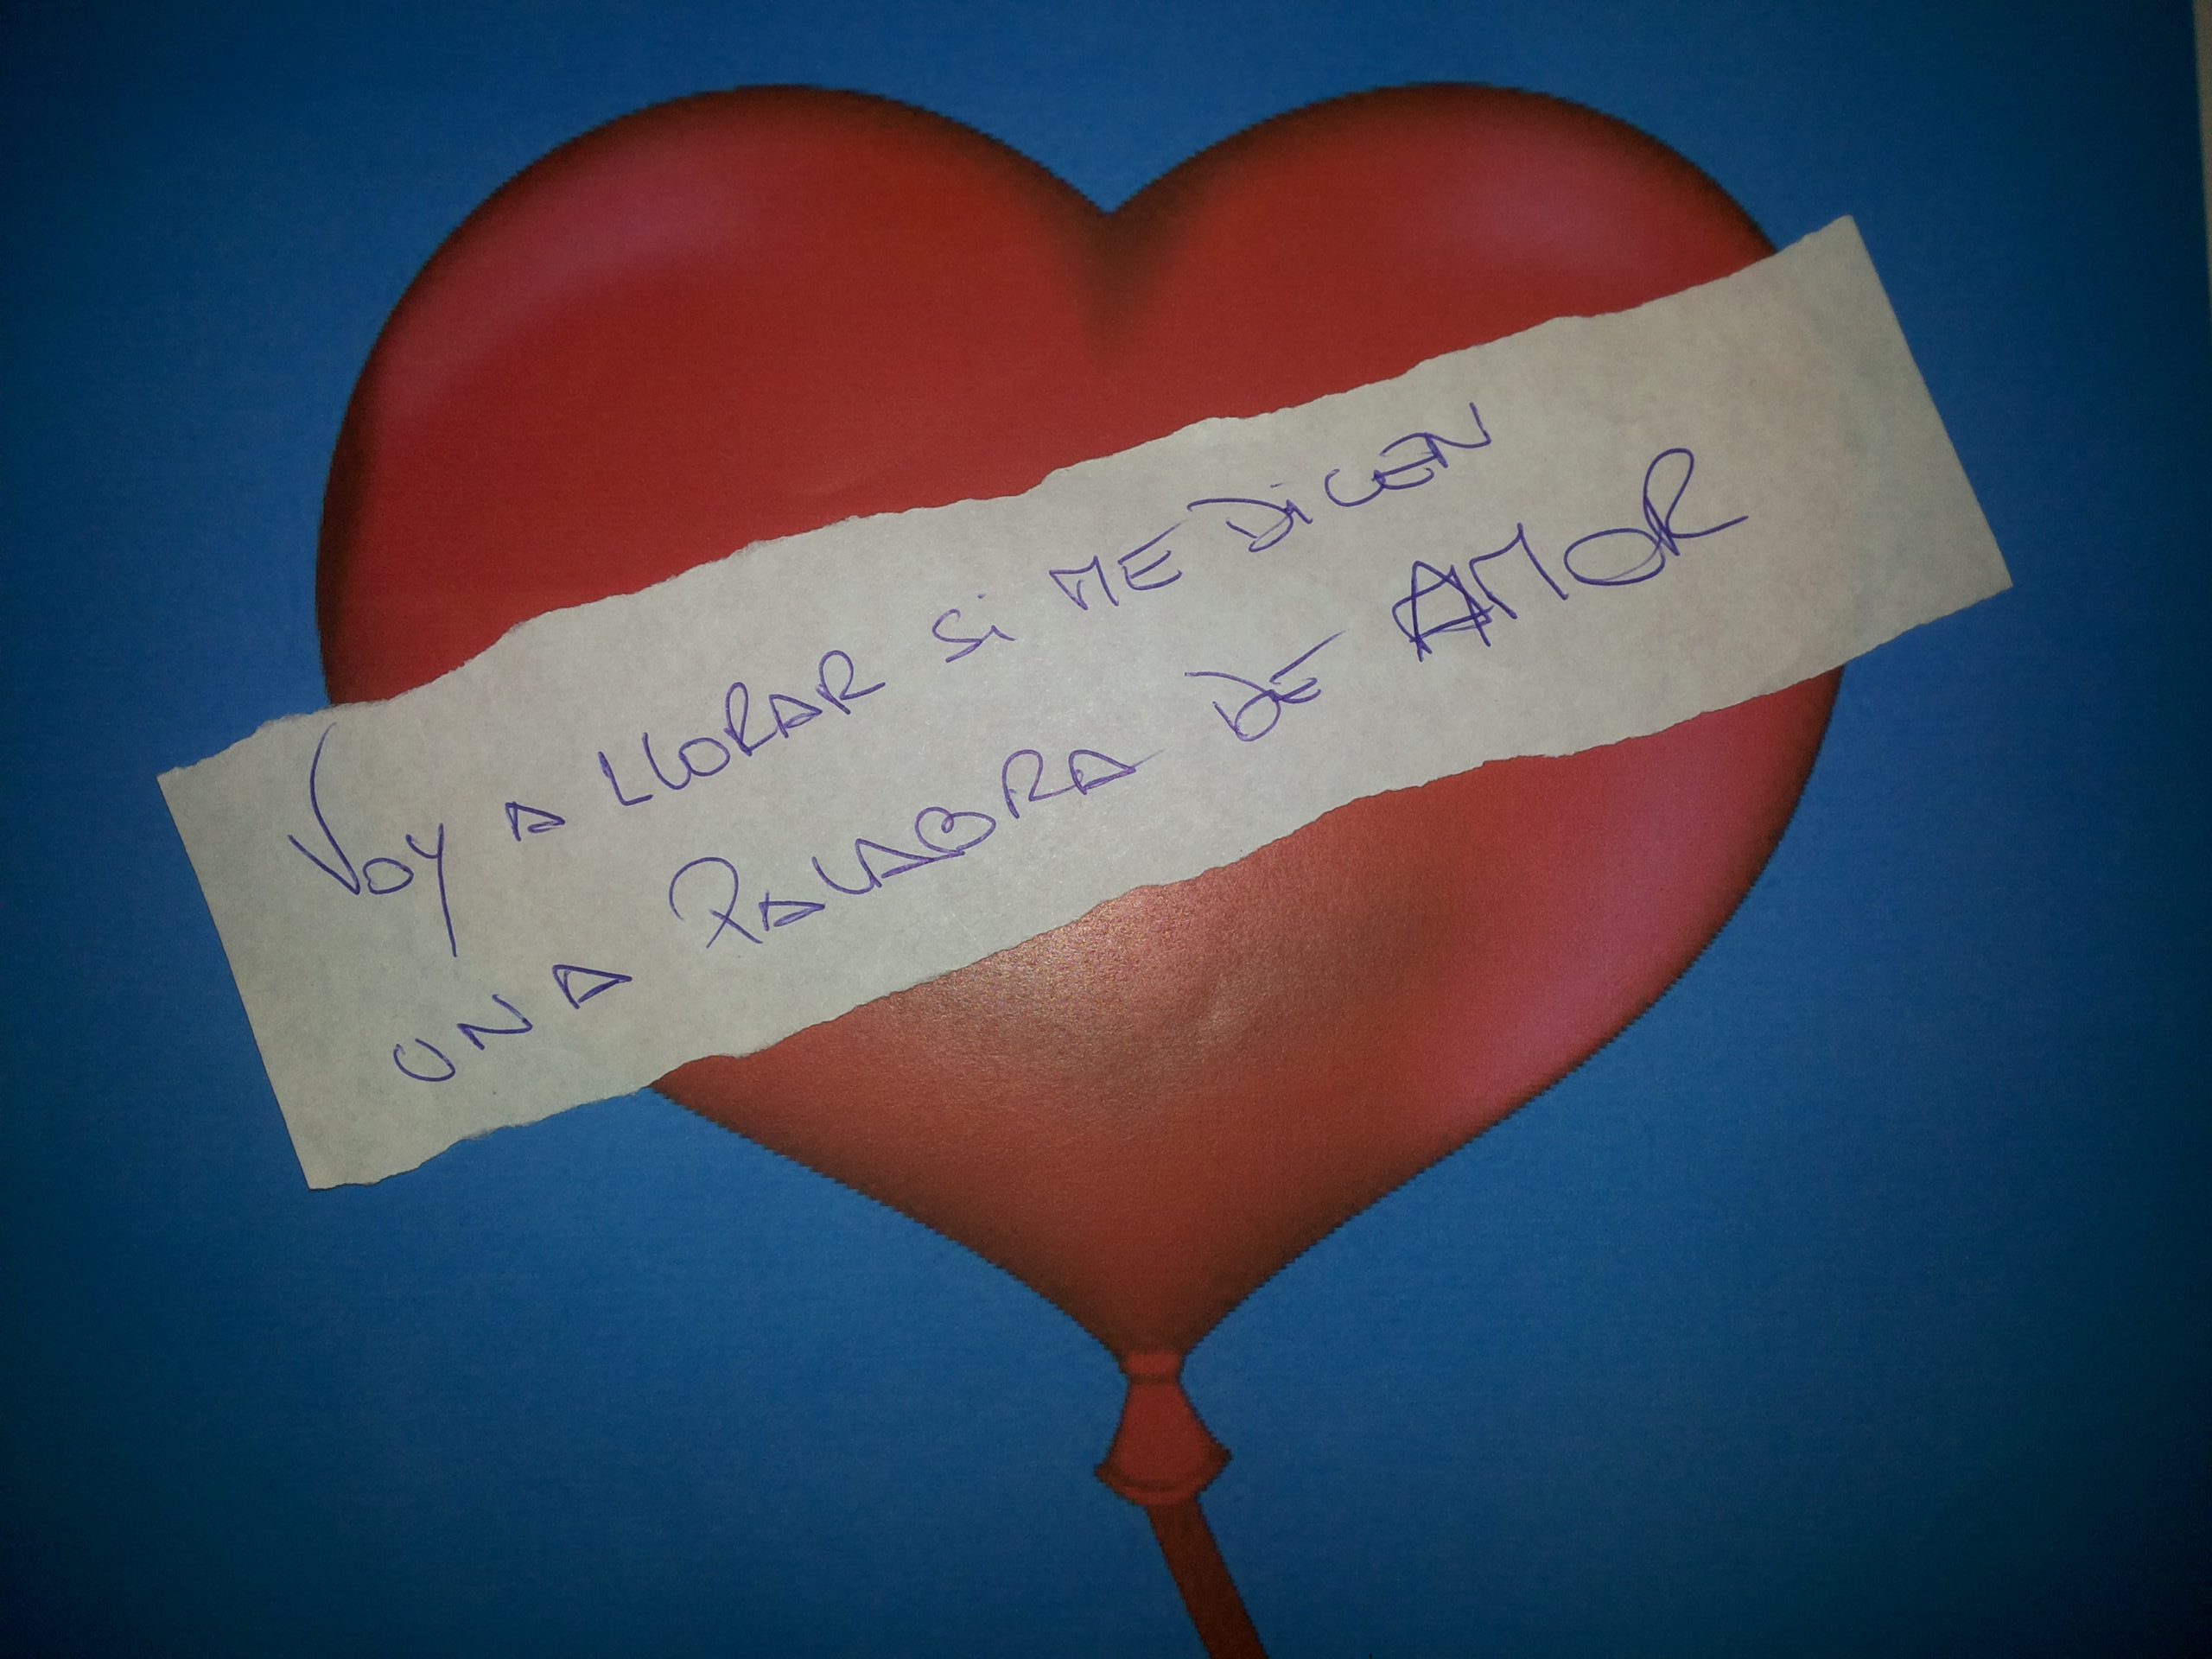 Voy A LLORAR Si ME DiCEN
UNA PALABRA DE AMOR